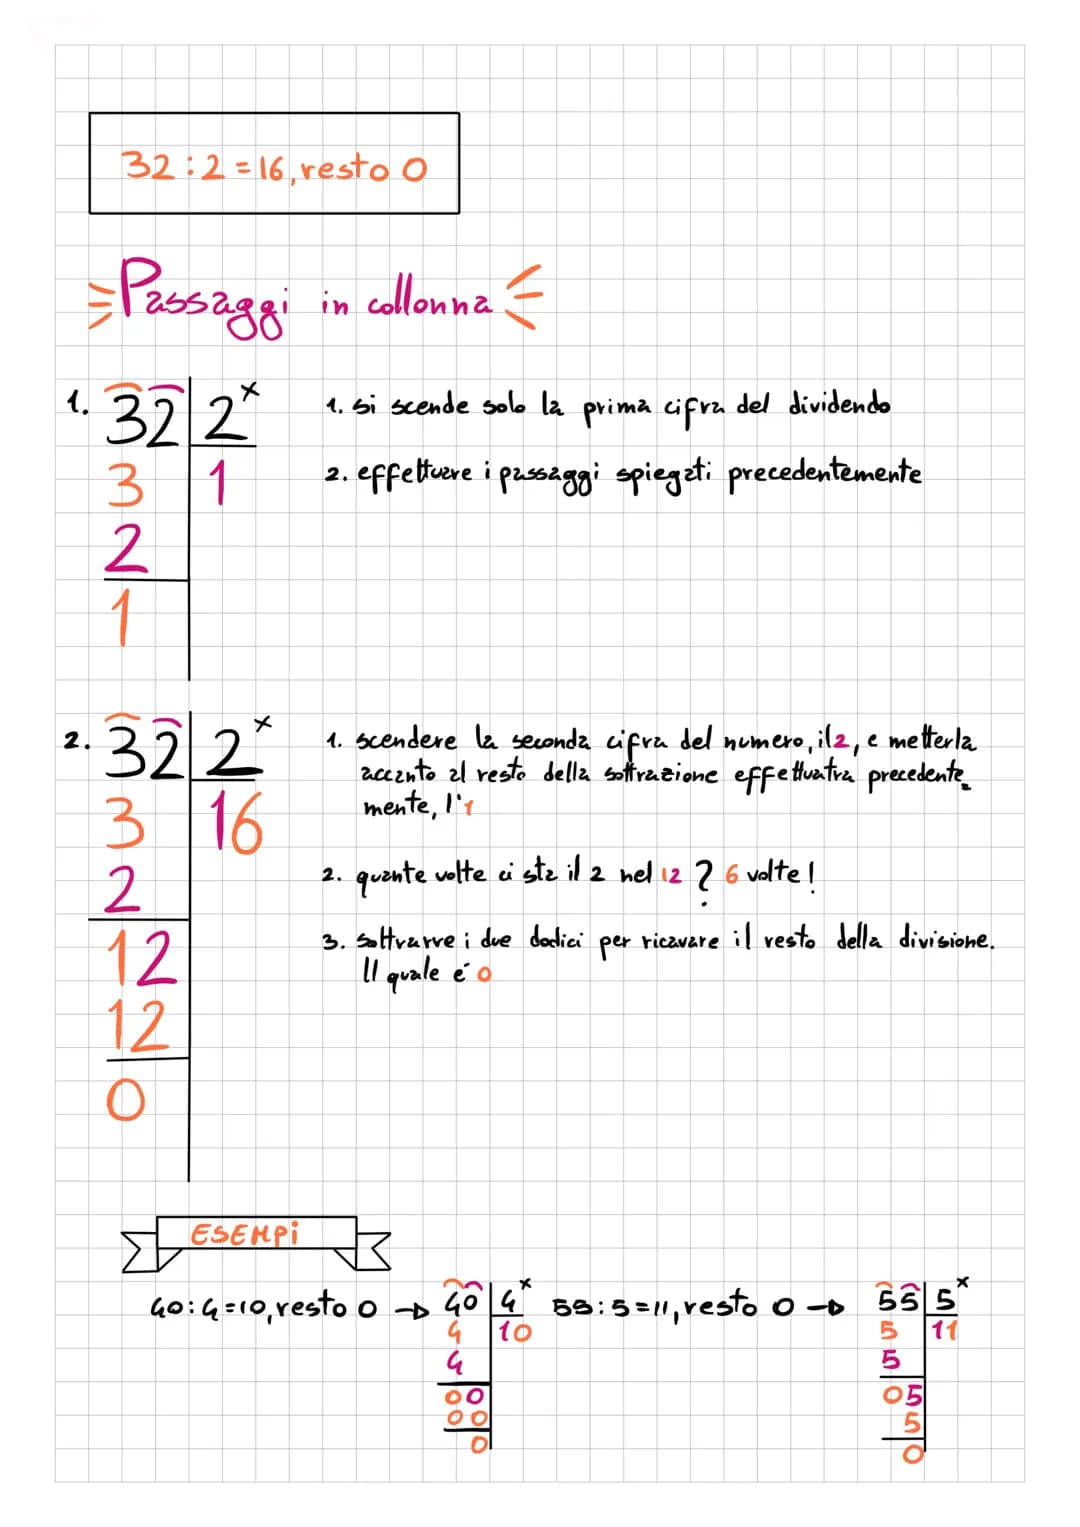 32:2=16, resto 0
Passaggi in collonna
1. 32 2 x
3 1
2
1
1. si scende solo la prima cifra del dividendo
2. effettuare i passaggi spiegati precedentemente
2. 32 2 x
3 16
2
12
12
0
1. scendere la seconda cifra del numero, il 2, e metterla
accanto al resto della sottrazione effettuatra precedente
mente, l'1
2. quante volte ci sta il 2 nel 12 ? 6 volte!
3. sottrarre i due dodici per ricavare il resto della divisione.
Il quale é 0
ESEMPi
40:4=10, resto 0 → 40 4 x
4 10
4
00
00
0
55:5=11, resto 0 → 55 5 x
5 11
5
05
5
0